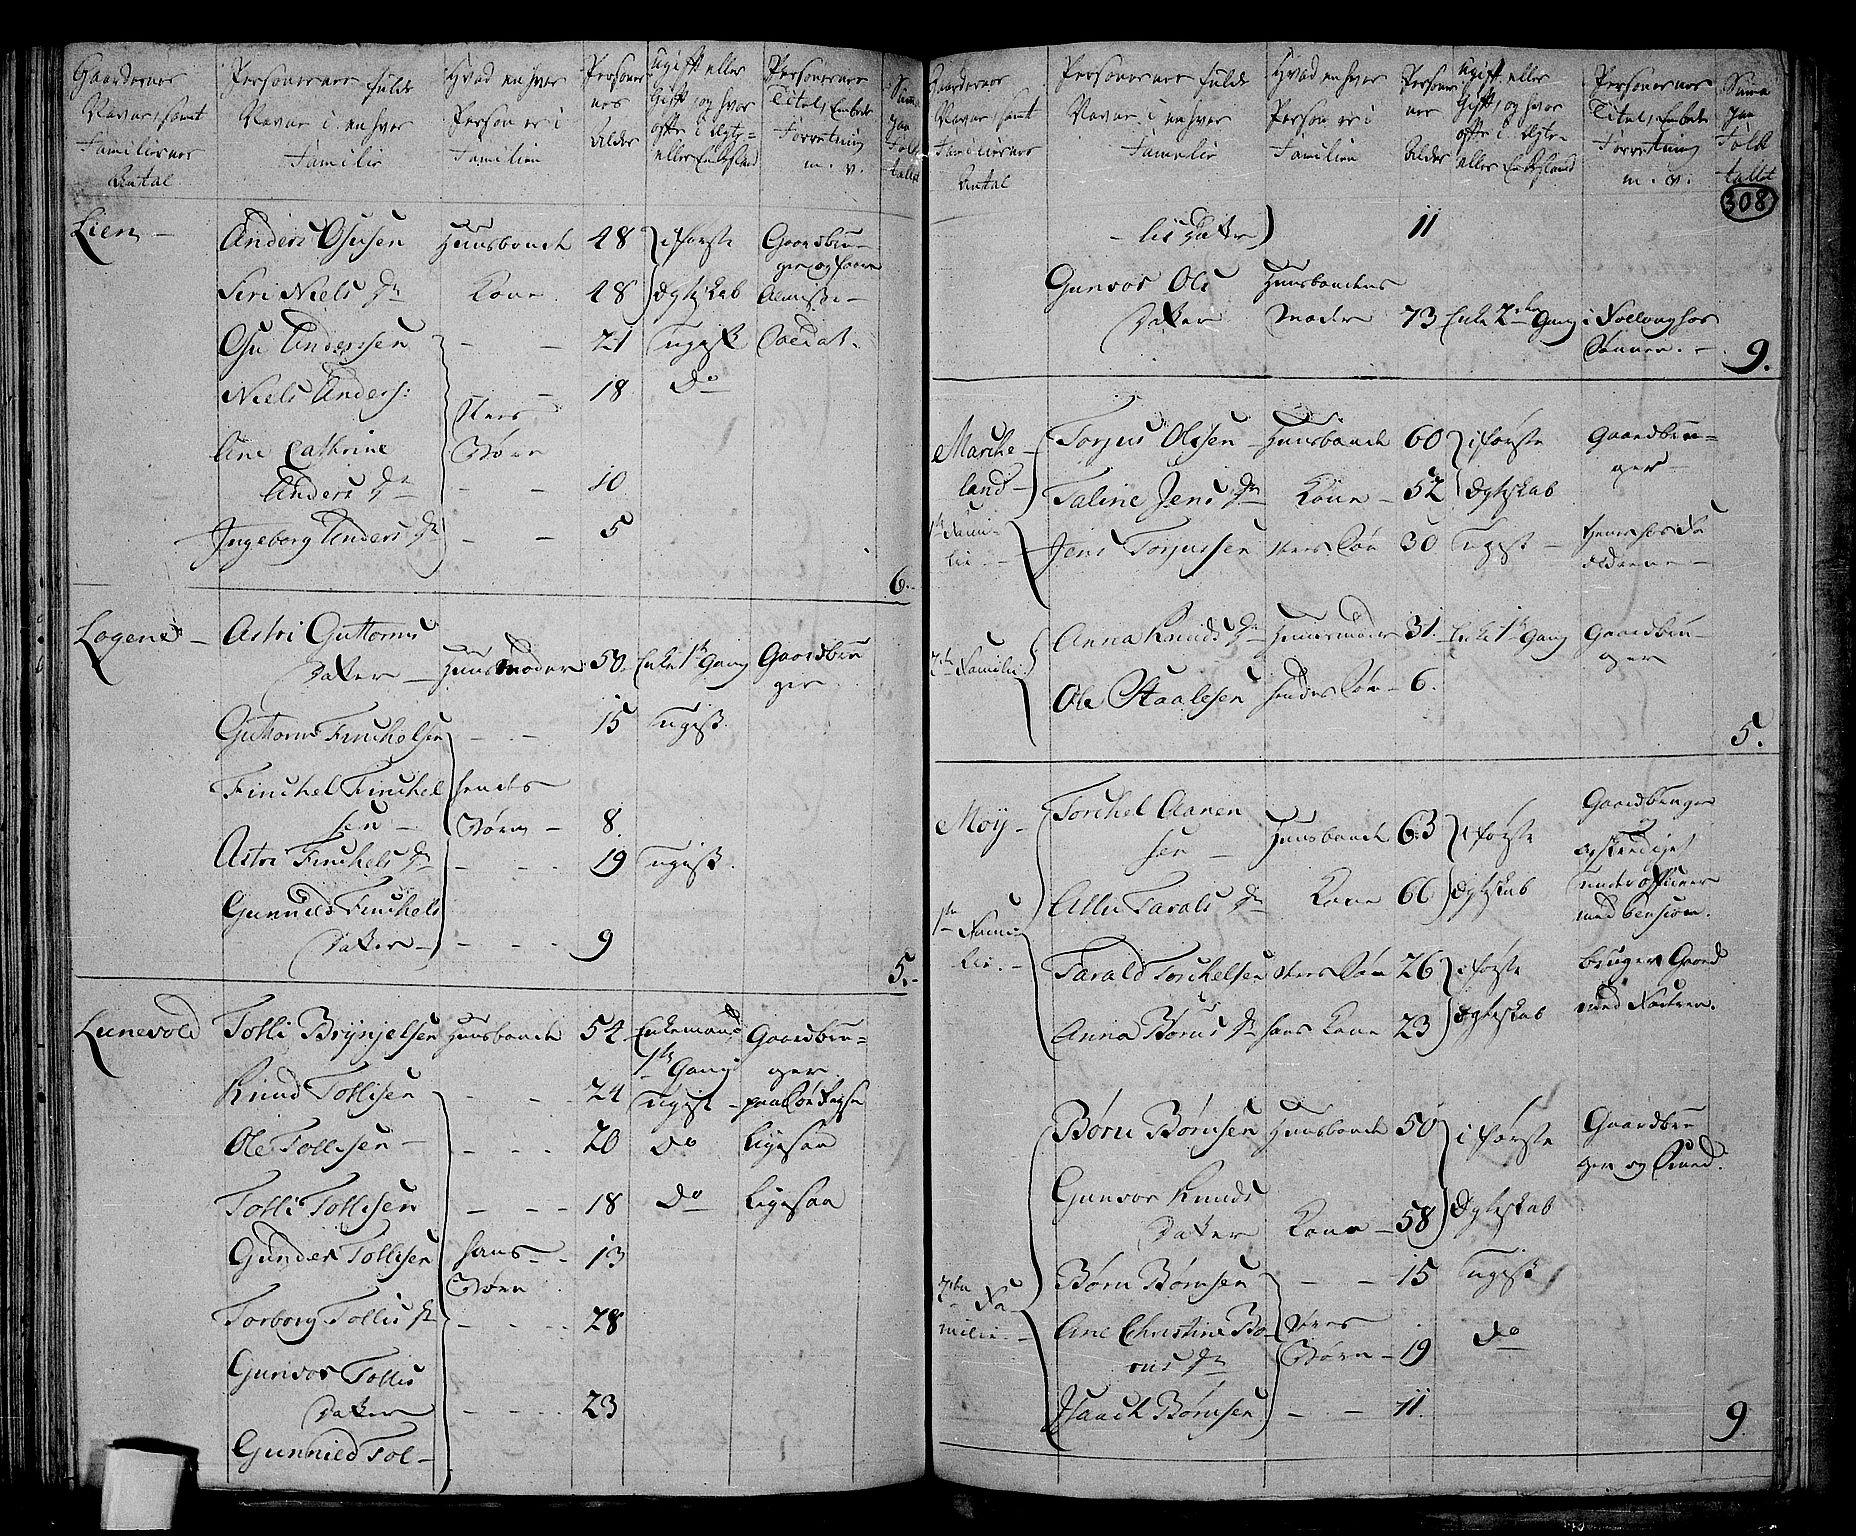 Gaardernes
Navne, samt
Familiernes
Antal
Personernes fulde
Navne i enhver
Familie
Hvad enhver
Person er i
Familien
Personer
nes
Alder
Ugift eller
Gift, og hvor
ofte i Ægte-
eller Enkestand
Personernes
Titel, Embede
Forretning
m. v.
Suma
paa
Folke
tallet
Lien - Anders Osusen Huusbonde 48 i første Gaardbru-
ger og
Siri Niels Dr Kone 48 Ægteskab Almisse -
Osu Anderssen - - 21 Ugift Soldat.
Niels Anders: - 18 Do
Deres
Ane Cathrine Børn
Anders Dr - - 10
Ingeborg Anders Dr - - 5
6.
Logene - Astri Guttorms
Datter Huusmoder 50. Enke 1te Gang Gaardbru
ger.
Guttorm Finchelsen - - 15 Ugift.
Finchel Finchel hendes
sen - Børn - 8
Astri Finchels Dr - - - 19 Ugift.
Gunnild Finchels
Datter - - - - 9
5.
Lunevold Tolli Brynjelsen Huusbonde 54 Enkemand Gaardbru-
1te Gang ger
Knud Tollisen - - 24 Ugift - paa
Ole Tollisen - - - - 20 Do Ligesaa
Tolli Tollisen - - - 18 Do Ligesaa
Gunder Tollisen hans - - 13
Børn
Torborg Tollis Dr - - - 28
Gunvor Tollis
Datter - - - 23
Gunnild Tol-
Gaardernes
Navne, samt
Familiernes
Antal
Personernes fulde
Navne i enhver
Familie
Hvad enhver
Person er i
Familien
Personer
nes
Alder
Ugift eller
Gift, og hvor
ofte i Ægte-
eller Enkestand
Personernes
Titel, Embede
Forretning
m. v.
Suma
paa
Folke
tallet
308
- lis Datter) 11
Gunvor Ols Huusbondens
Datter Moder 73 Enke 2den Gang i Follaug hos
Sønnen. -
9.
Marche- Torjus Olsen Huusbonde 60 i første Gaardbru-
land - ger -
Taline Jens Dr Kone - 52 Ægteskab
1te Fami-
lie - Jens Torjussen deres Søn 30 Ugift - hos
2den Familie Anna Knuds Dr Huusmoder 31. Enke 1te Gang Gaardbru-
ger
Ole Staalesen hendes Søn - 6.
5.
Moy - Torchel Aanen
sen - Huusbonde 63 i første Gaardbruger
afskediget
Alli Taralds Dr Kone 66 Ægteskab underofficeer
med Pension.
1te Fami-
lie. - Tarald Torchelsen deres Søn 26 i første bruger Gaard
med Faderen.
Anna Børus Dr hans Kone 23 Ægteskab
Børu Børusen Huusbonde 50 i første Gaardbru
ger og Smed.
Gunvor Knuds
Datter Kone - 58 Ægteskab
2den Fa-
milie - Børu Børusen - - 15 Ugift
Ane Christine Bø- deres
rus Dr Børn - 19 Do
Isaach Børusen - - 11.
9